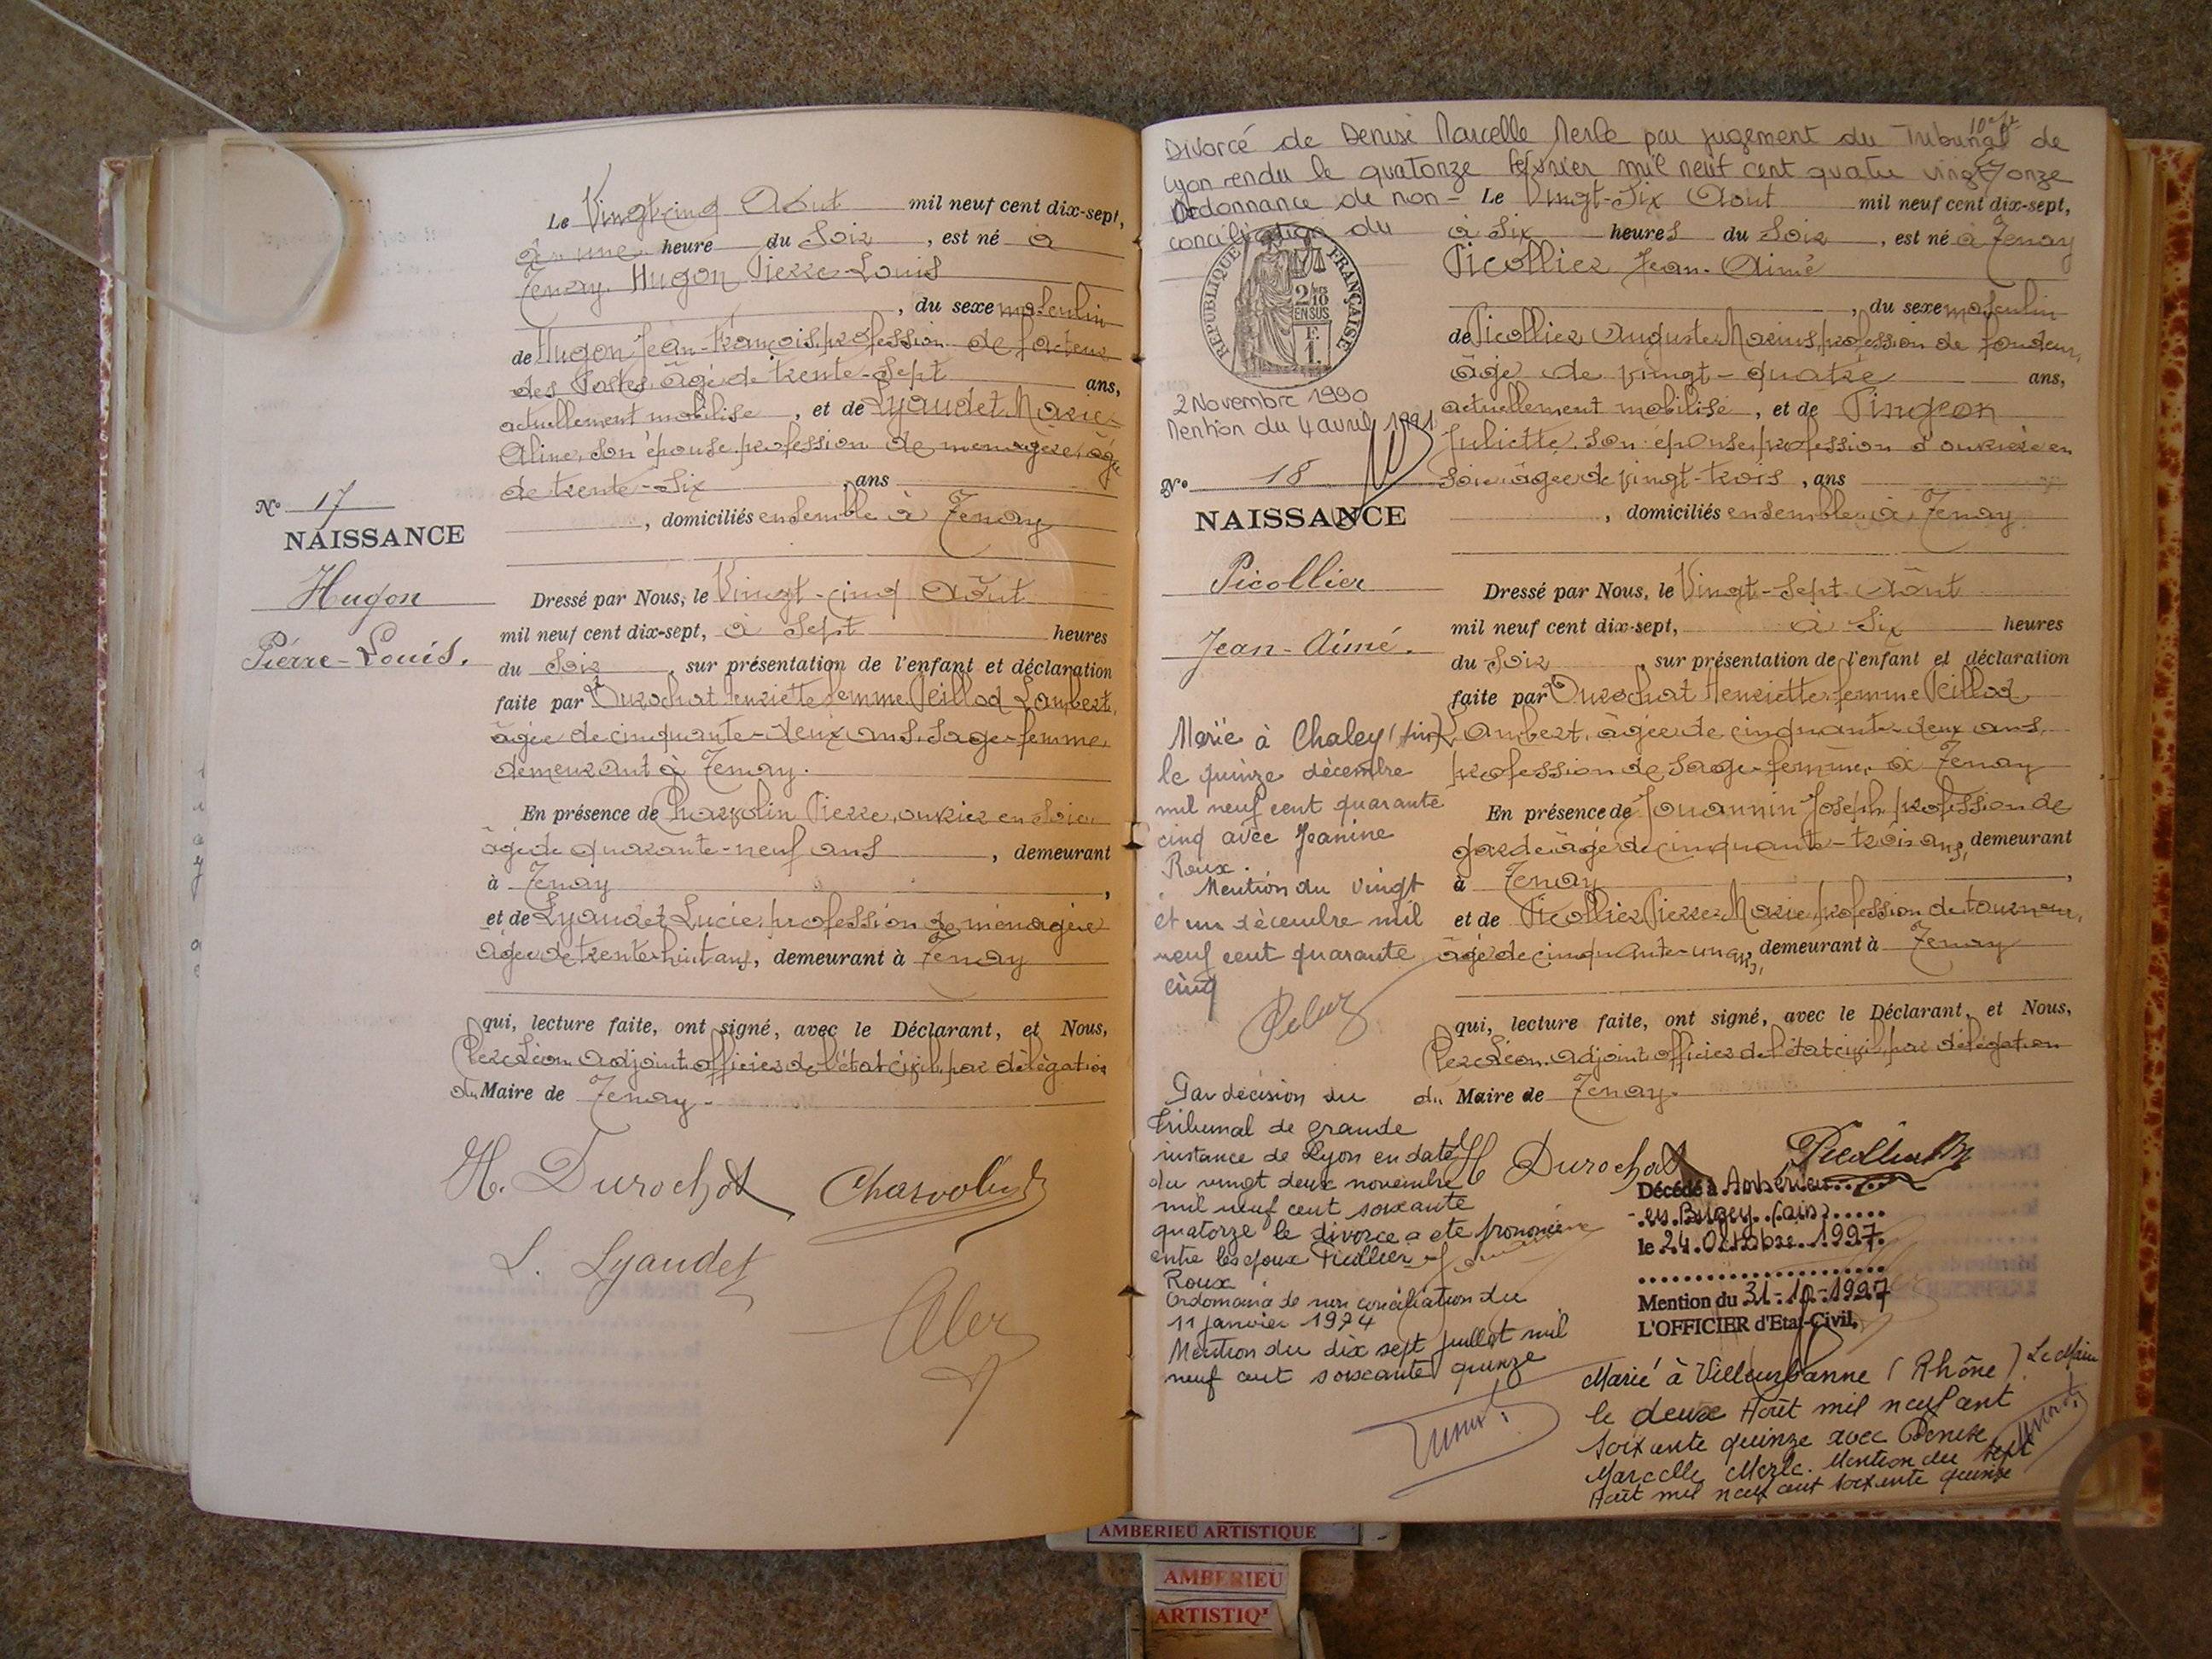 Le Vingt-cinq Août mil neuf cent dix-sept,
à une heure du Soir, est né à
Tenay Hugon Pierre-Louis
, du sexe masculin
de Hugon Jean-François, profession de facteur
des Postes, âgé de trente-sept ans,
actuellement mobilisé, et de Lyaudet Marie-
Aline, son épouse, profession de menagère, âgée
de trente-six, ans
, domiciliés ensemble à Tenay
N° 17
NAISSANCE
Hugon
Pierre-Louis.
Dressé par Nous, le Vingt-cinq Août
mil neuf cent dix-sept, à Sept heures
du Soir, sur présentation de l'enfant et déclaration
faite par Durochat Henriette femme Peillod Lambert,
âgée de cinquante-deux ans, Sage-femme,
demeurant à Tenay.
En présence de Charvolin Pierre, ouvrier en Soie,
âgé de quarante-neuf ans, demeurant
à Tenay,
et de Lyaudet Lucie, profession de ménagère
âgée de trente-huit ans, demeurant à Tenay
qui, lecture faite, ont signé, avec le Déclarant, et Nous,
Clerc Léon, adjoint officier de l'état civil, par délégation
du Maire de Tenay.
H. Durochat Charvolin
L. Lyaudet
Divorcé de Denise Marcelle Merle par jugement du Tribunal de
Lyon rendu le quatorze février mil neuf cent quatre vingt onze
Ordonnance de non-
conciliation du
2 Novembre 1990
Mention du 4 avril 1991
RÉPUBLIQUE FRANÇAISE
2/10
EN SUS
F.
1.
Le Vingt-Six Août mil neuf cent dix-sept,
à Six heures du Soir, est né à Tenay
Picollier Jean-Aimé
, du sexe masculin
de Picollier Auguste Marius, profession de fondeur,
âgé de vingt-quatre ans,
actuellement mobilisé, et de Pingeon
Juliette, son épouse, profession d'ouvrière en
Soie, âgée de vingt-trois, ans
, domiciliés ensemble à Tenay
N° 18
NAISSANCE
Picollier
Jean-Aimé.
Dressé par Nous, le Vingt-Sept Août
mil neuf cent dix-sept, à Six heures
du Soir, sur présentation de l'enfant et déclaration
faite par Durochat Henriette, femme Peillod
Lambert, âgée de cinquante-deux ans,
profession de Sage-femme, à Tenay
En présence de Jouannin Joseph, profession de
garde âgé de cinquante-trois ans, demeurant
à Tenay,
et de Picollier Pierre Marie, profession de tourneur,
âgé de cinquante-un ans, demeurant à Tenay
qui, lecture faite, ont signé, avec le Déclarant, et Nous,
Clerc Léon, adjoint officier de l'état civil, par délégation
du Maire de Tenay.
Marié à Chaley (Ain)
le quinze décembre
mil neuf cent quarante
cinq avec Jeanine
Roux.
Mention du vingt
et un décembre mil
neuf cent quarante
cinq
Par décision du
Tribunal de grande
instance de Lyon en date
du vingt deux novembre
mil neuf cent soixante
quatorze le divorce a été prononcé
entre les époux Picollier
Roux.
Ordonnance de non conciliation du
11 janvier 1974
Mention du dix sept juillet mil
neuf cent soixante quinze
H Durochat Picollier
Décédé à Ambérieu
en Bugey (Ain)
le 24 Octobre 1997
Mention du 31-10-1997
L'OFFICIER d'Etat-Civil,
Marié à Villeurbanne (Rhône). Le Maire
le deux Août mil neuf cent
soixante quinze avec Denise
Marcelle Merle. Mention du sept
Août mil neuf cent soixante quinze
AMBERIEU ARTISTIQUE
AMBERIEU
ARTISTIQ